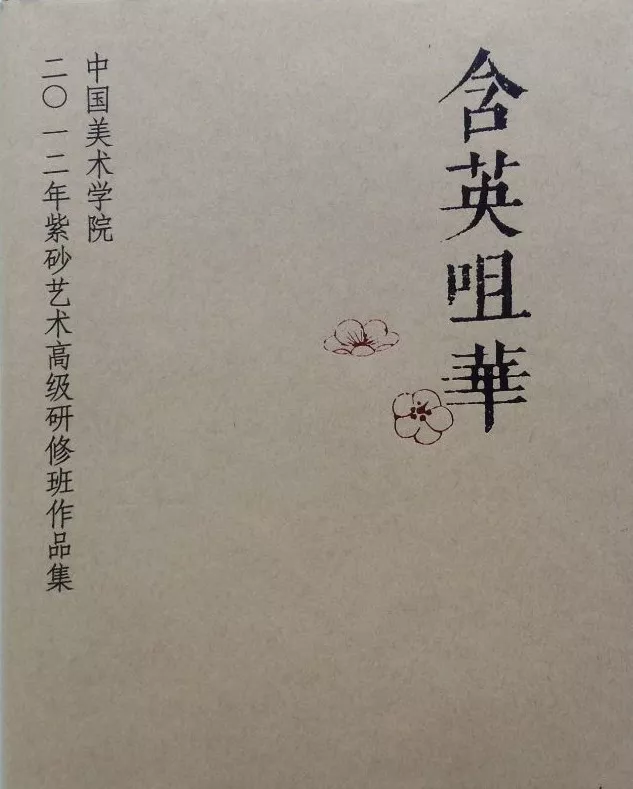 含英咀華
中国美术学院
二〇一二年紫砂艺术高级研修班作品集